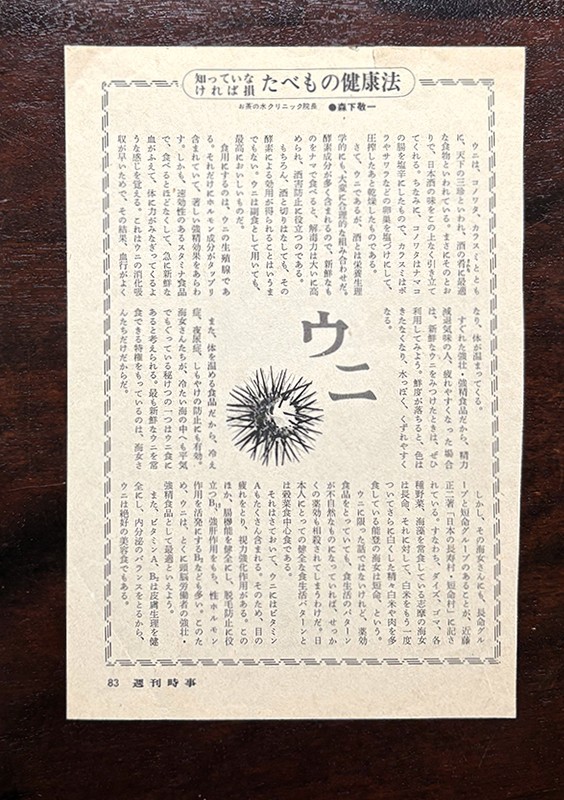 知っていな
ければ損
たべもの健康法
お茶の水クリニック院長 ●森下敬一
ウニは、コノワタ、カラスミととも
に、天下の三珍といわれ、酒の肴に最適
な食物といわれている。まさにそのとお
りで、日本酒の味をこの上なく引き立て
てくれる。ちなみに、コノワタはナマコ
の腸を塩辛にしたもので、カラスミはボ
ラやサワラなどの卵巣を塩づけにして、
圧搾したあと乾燥したものである。
さて、ウニであるが、酒とは栄養生理
学的にも、大変に合理的な組み合わせだ。
酵素成分が多く含まれるので、新鮮なも
のをナマで食べると、解毒力は大いに高
められ、酒害防止に役立つのである。
もちろん、酒と切りはなしても、その
酵素による効用が得られることはいうま
でもない。ウニは副食として用いても、
最高においしいものだ。
食用にするのは、ウニの生殖線であ
る。それだけにホルモン成分がタップリ
含まれていて、著しい強精効果をあらわ
す。しかも、速効性のあるスタミナ食品
で、食べるとほどなくして、急に新鮮な
血がふえて、体に力がみなぎってくるよ
うな感じを覚える。これはウニの消化吸
収が早いためで、その結果、血行がよく
なり、体が温まってくる。
すぐれた強壮・強精食品だから、精力
減退気味の人、疲れやすくなった場合
は、新鮮なウニをみつけたときは、ぜひ
利用してみよう。鮮度が落ちると、色は
きたなくなり、水っぽく、くずれやすく
なる。
ウニ
また、体を温める食品だから、冷え
症、夜尿症、しもやけの防止にも有効。
海女さんたちが、冷たい海の中へも平気
でもぐっている秘けつの一つはウニ食に
あると考えられる。最も新鮮なウニを常
食できる特権をもっているのは、海女さ
んたちだけだからだ。
しかし、その海女さんにも、長命グル
ープと短命グループのあることが、近藤
正二著「日本の長寿村・短命村」に記さ
れている。すなわち、ダイズ、ゴマ、各
種野菜、海藻を常食している志摩の海女
は長命、それに対して、白米をもう一度
ついてさらに白くした精々白米や肉を多
食している能登の海女は短命、という。
ウニに限った話ではないけれど、薬効
食品をとっていても、食生活のパターン
が不自然なものになっていれば、せっか
くの薬効も相殺されてしまうわけだ。日
本人にとっての健全な食生活パターンと
は穀菜食中心食である。
それはさておいて、ウニにはビタミン
Aもたくさん含まれる。そのため、目の
疲れをとり、視力強化作用がある。この
ほか、腸機能を健全にし、脱毛防止に役
立つB₁、強肝作用をもち、性ホルモン
作用を活発にするB₂なども多い。このた
め、ウニは、とくに頭脳労働者の強壮・
強精食品として最適といえよう。
また、ビタミンA、B₂は皮膚生理を健
全にし、内分泌のバランスをとるから、
ウニは絶好の美容食でもある。
83 週刊時事